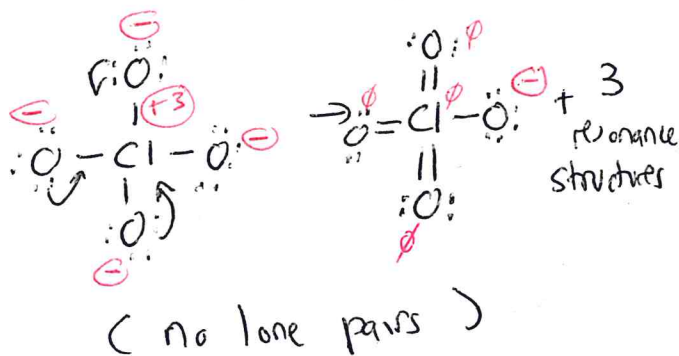 ⊖
:Ö:
⊖ +3
:Ö – Cl – Ö: ⊖
:O:
⊖
→
:O: ϕ
ϕ O = Cl ϕ – Ö: ⊖ + 3
resonance
structures
:O:
ϕ
( no lone pairs )